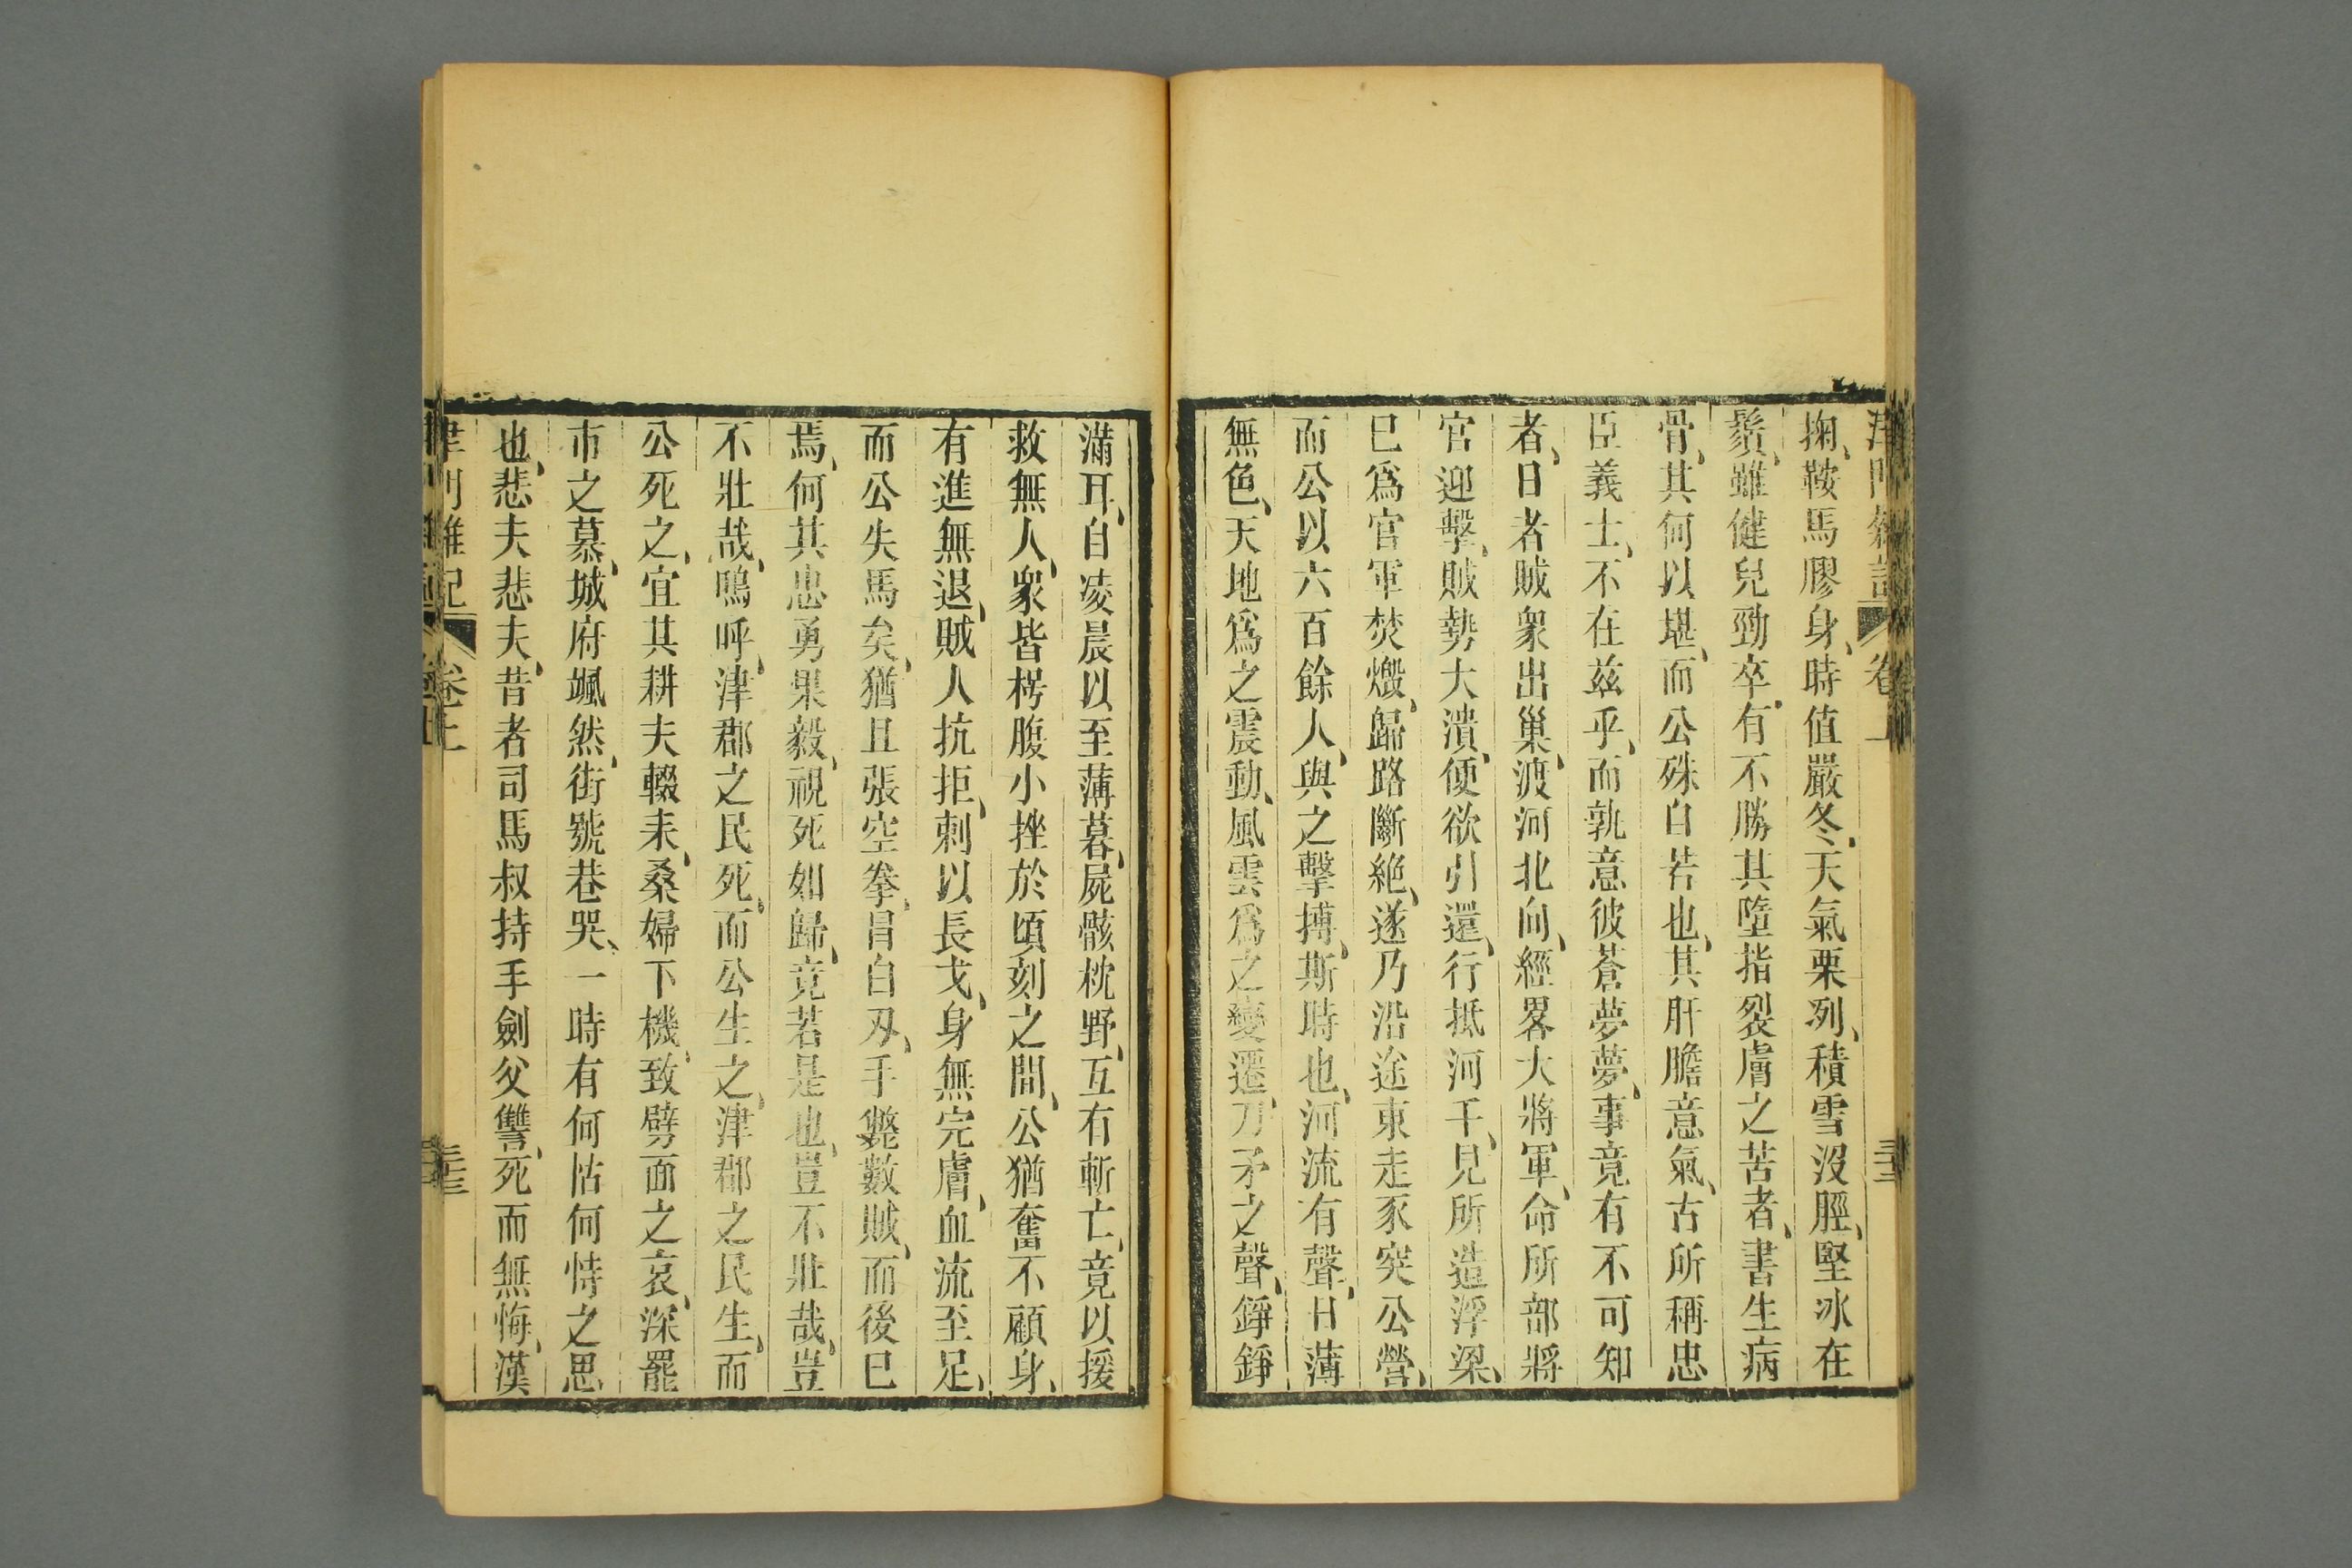 掬、鞍馬膠身、時值嚴冬、天氣栗冽、積雪沒脛、堅冰在
鬚、雖健兒勁卒、有不勝其墮指裂膚之苦者、書生病
骨、其何以堪、而公殊自若也、其肝膽意氣、古所稱忠
臣義士、不在茲乎、而孰意彼蒼夢夢、事竟有不可知
者、日者賊衆出巢、渡河北向、經畧大將軍、命所部將
官迎擊、賊勢大潰、便欲引還、行抵河干、見所造浮梁、
已爲官軍焚燬、歸路斷絕、遂乃沿途東走豕突公營、
而公以六百餘人、與之擊搏、斯時也、河流有聲、日薄
無色、天地爲之震動、風雲爲之變遷、刀矛之聲、錚錚
滿耳、自凌晨以至薄暮、屍骸枕野、互有斬亡、竟以援
救無人、衆皆枵腹小挫於頃刻之間、公猶奮不顧身、
有進無退、賊人抗拒、刺以長戈、身無完膚、血流至足、
而公失馬矣、猶且張空拳、冒白刃、手斃數賊、而後已
焉、何其忠勇果毅、視死如歸、竟若是也、豈不壯哉、豈
不壯哉、嗚呼、津郡之民死、而公生之、津郡之民生、而
公死之、宜其耕夫輟耒、桑婦下機、致劈面之哀、深罷
市之慕、城府颯然、街號巷哭、一時有何怙何恃之思
也、悲夫悲夫、昔者司馬叔持手劍父讐、死而無悔、漢
卷上
三十三